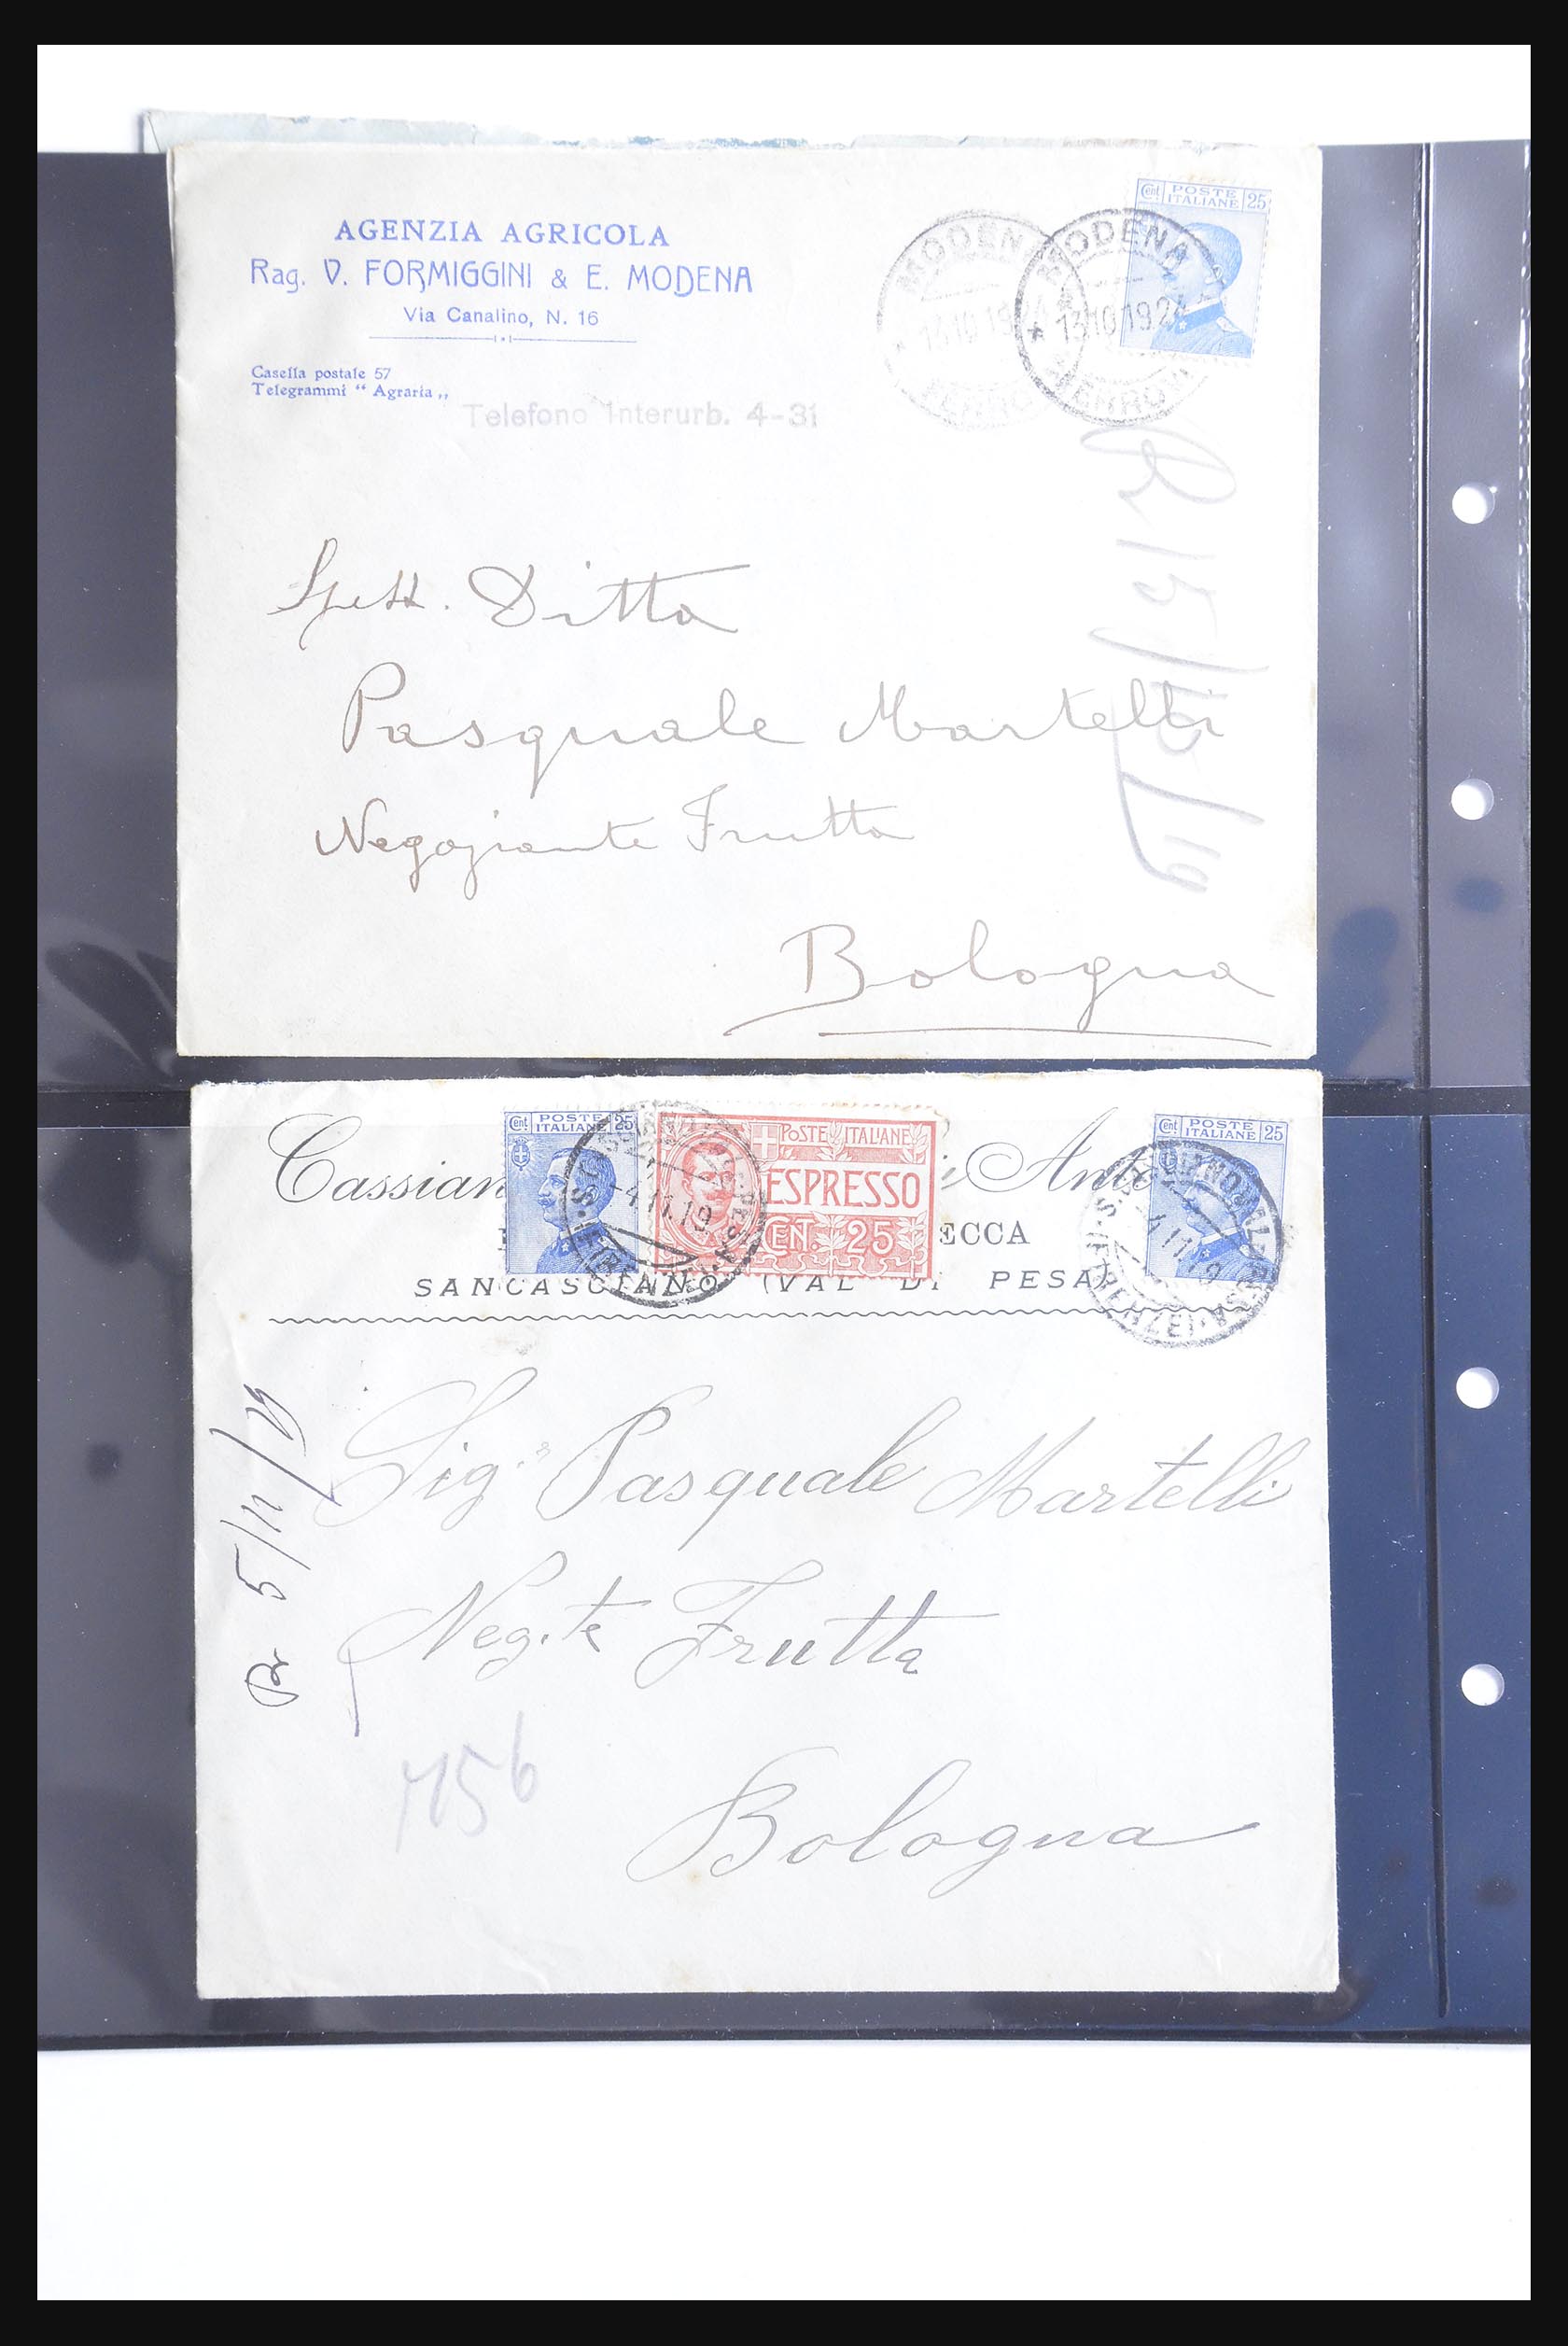 AGENZIA AGRICOLA
Rag. V. FORMIGGINI & E. MODENA
Via Canalino, N. 16
Casella postale 57
Telegrammi “ Agraria „
Telefono Interurb. 4-31
Cent POSTE ITALIANE 25
MODENA
13 10 192
FERROV
MODENA
13 10 192
FERROV
R 15/10/19
Spett. Ditta
Pasquale Martelli
Negoziante Frutta
Bologna
Cassian
Cent POSTE ITALIANE 25
POSTE ITALIANE
ESPRESSO
CENT. 25
i Anto
Cent POSTE ITALIANE 25
ECCA
SANCASCIANO (VAL DI PESA)
4.11.19
4.11.19
5/11/19
Sig. Pasquale Martelli
Neg.te Frutta
Bologna
756